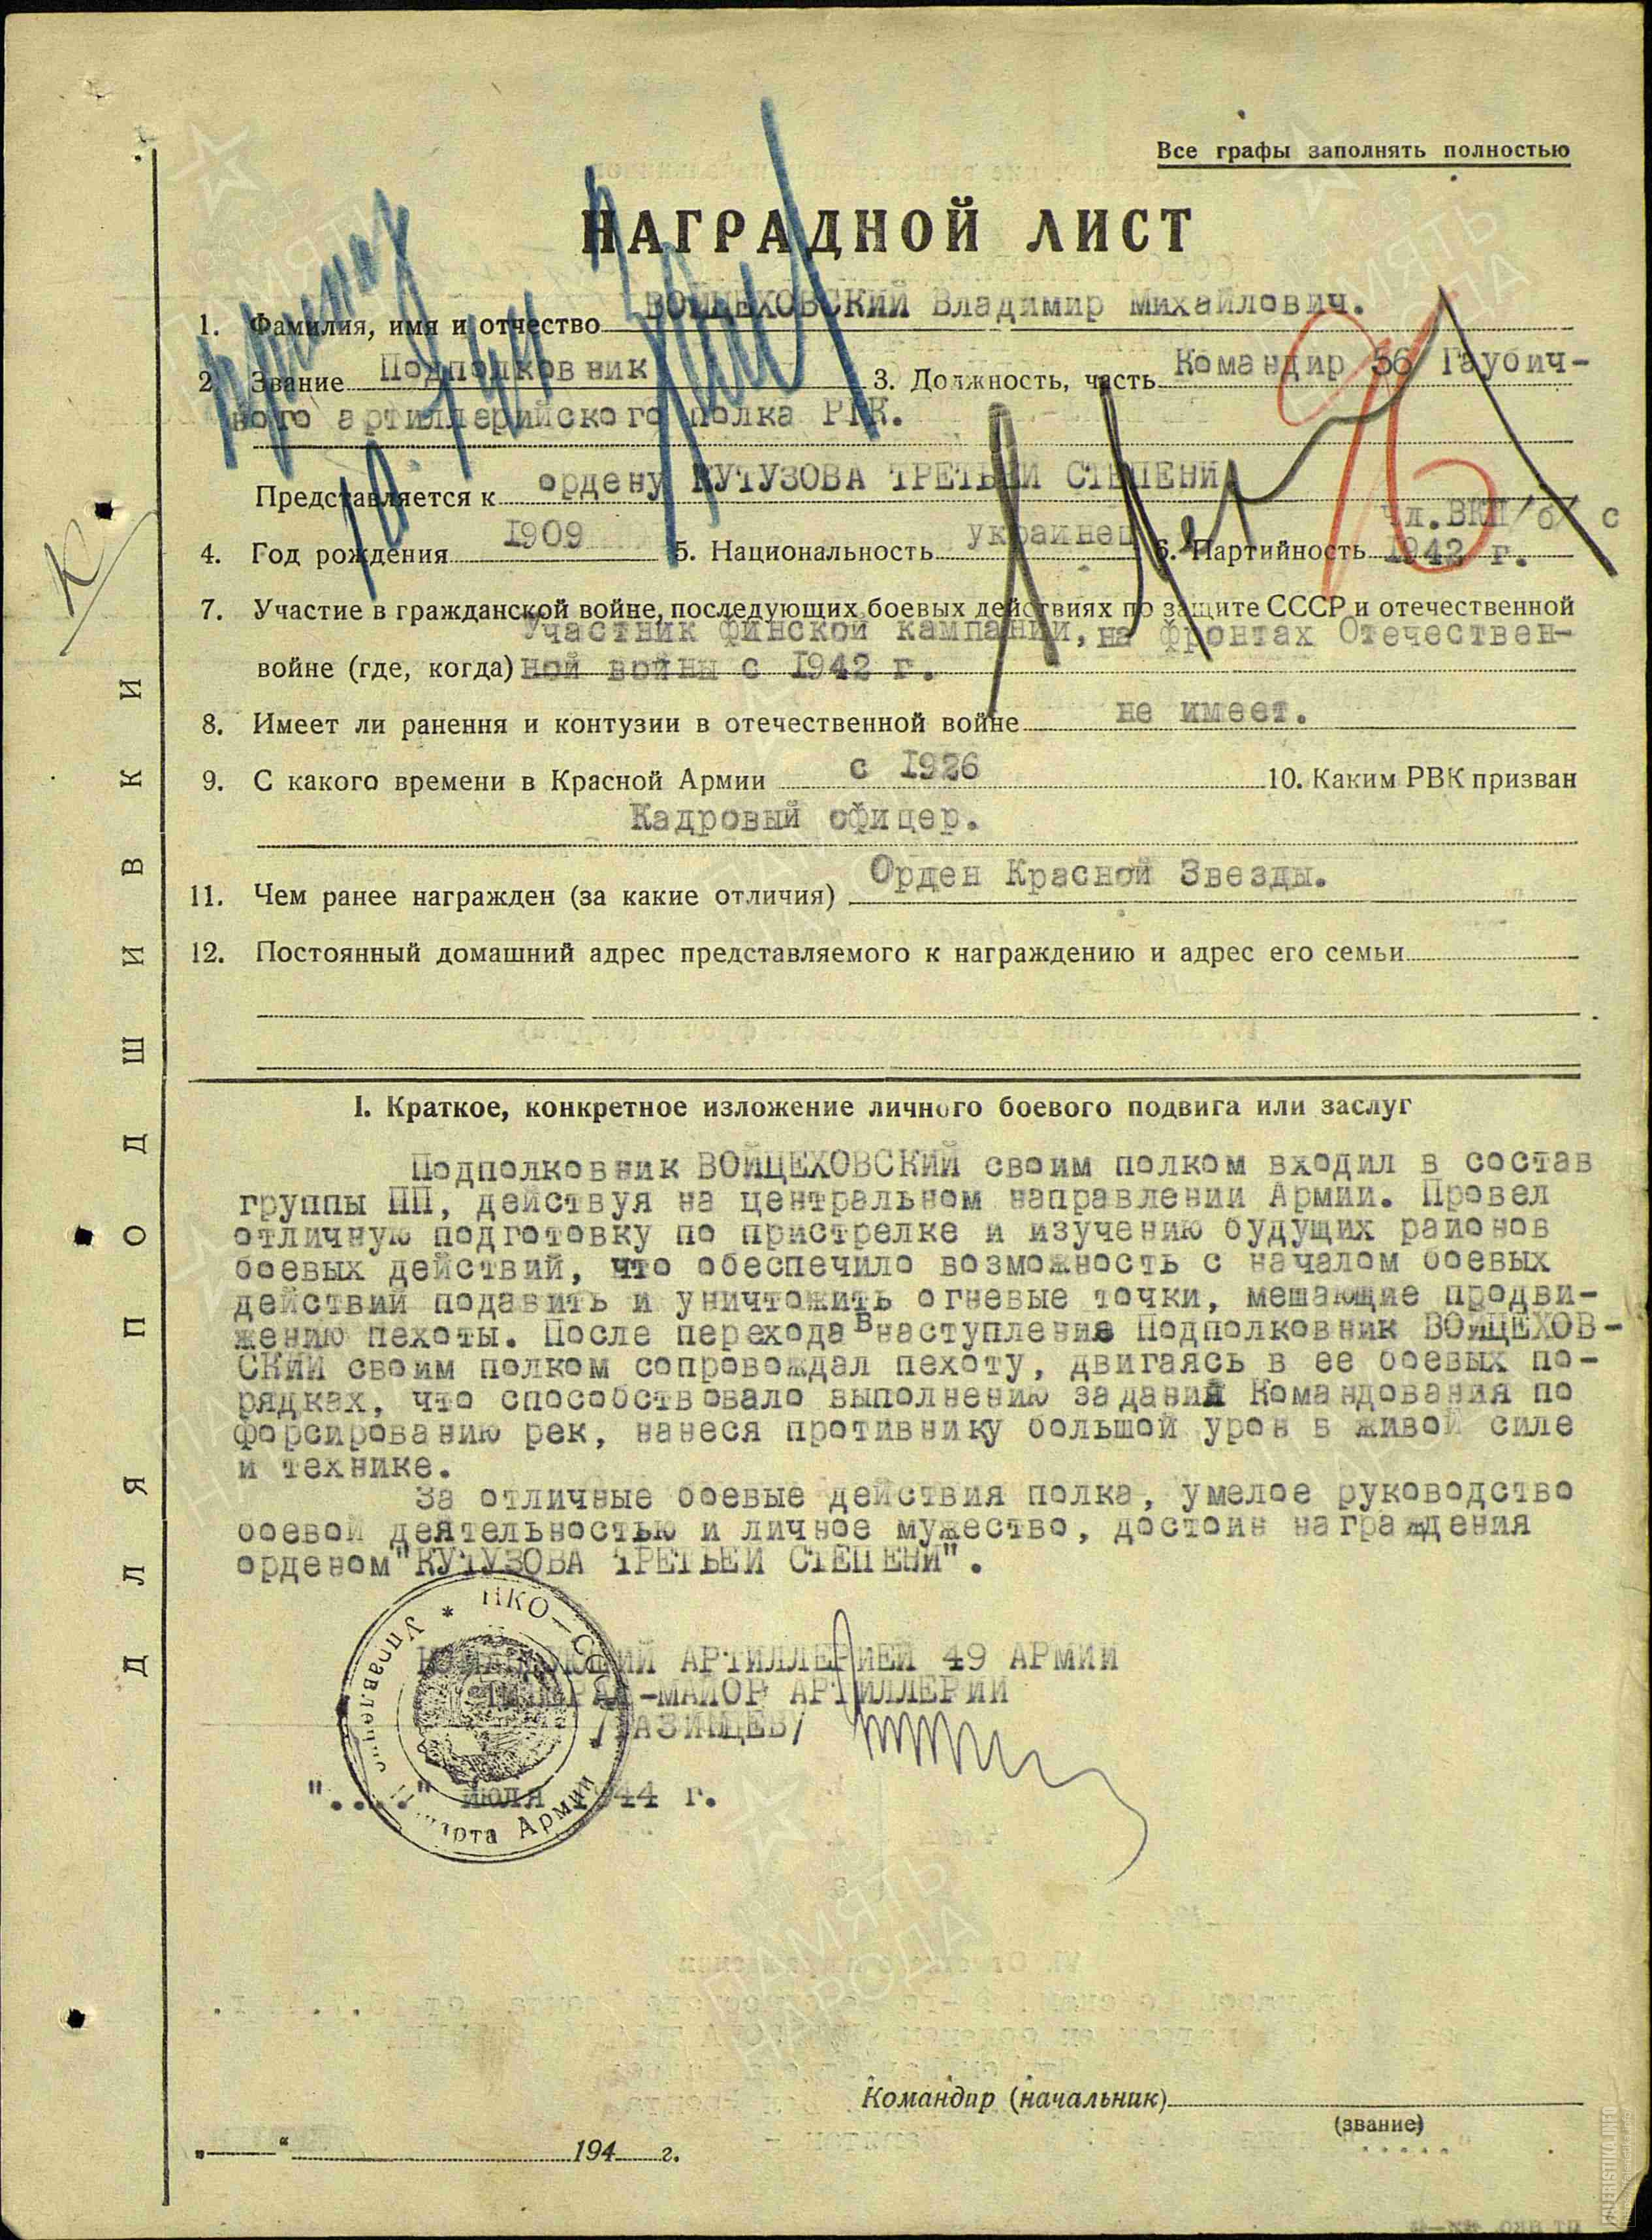 Все графы заполнять полностью
НАГРАДНОЙ ЛИСТ
1. Фамилия, имя и отчество ВОЙЦЕХОВСКИЙ Владимир Михайлович.
2. Звание Подполковник 3. Должность, часть Командир 56 Гаубич-
ного артиллерийского полка РГК.
Представляется к ордену КУТУЗОВА ТРЕТЬЕЙ СТЕПЕНИ
4. Год рождения 1909 5. Национальность украинец 6. Партийность чл.ВКП/б/ с
1942 г.
7. Участие в гражданской войне, последующих боевых действиях по защите СССР и отечественной
Участник финской кампании, на фронтах Отечествен-
войне (где, когда) ной войны с 1942 г.
8. Имеет ли ранения и контузии в отечественной войне не имеет.
9. С какого времени в Красной Армии с 1926 10. Каким РВК призван
Кадровый офицер.
11. Чем ранее награжден (за какие отличия) Орден Красной Звезды.
12. Постоянный домашний адрес представляемого к награждению и адрес его семьи
I. Краткое, конкретное изложение личного боевого подвига или заслуг
Подполковник ВОЙЦЕХОВСКИЙ своим полком входил в состав
группы ПП, действуя на центральном направлении Армии. Провел
отличную подготовку по пристрелке и изучению будущих районов
боевых действий, что обеспечило возможность с началом боевых
действий подавить и уничтожить огневые точки, мешающие продви-
жению пехоты. После перехода в наступление Подполковник ВОЙЦЕХОВ-
СКИЙ своим полком сопровождал пехоту, двигаясь в ее боевых по-
рядках, что способствовало выполнению заданий Командования по
форсированию рек, нанеся противнику большой урон в живой силе
и технике.
За отличные боевые действия полка, умелое руководство
боевой деятельностью и личное мужество, достоин награждения
орденом "КУТУЗОВА ТРЕТЬЕЙ СТЕПЕНИ".
КОМАНДУЮЩИЙ АРТИЛЛЕРИЕЙ 49 АРМИИ
ГЕНЕРАЛ-МАЙОР АРТИЛЛЕРИИ
/КАЗИНЦЕВ/
"....." июля 1944 г.
НКО-СССР * Управление Штарта Армии
Командир (начальник)
(звание)
„ “ 194 г.
ДЛЯ ПОДШИВКИ
ПАМЯТЬ НАРОДА